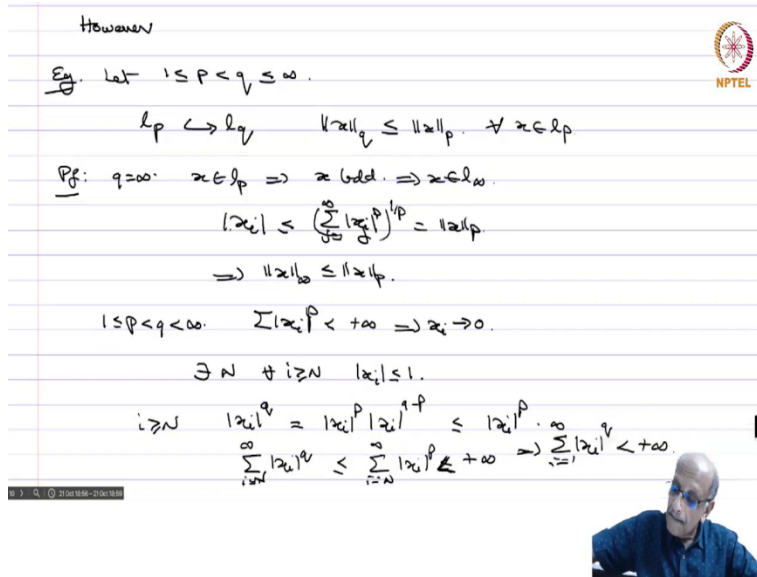 However
NPTEL
Eg. Let 1 ≤ p < q ≤ ∞.
lp ↪ lq ‖x‖q ≤ ‖x‖p. ∀ x ∈ lp
Pf: q=∞. x ∈ lp ⇒ x bdd. ⇒ x ∈ l∞.
|xi| ≤ (∑_{j=1}^∞ |xj|^p)^{1/p} = ‖x‖p
⇒ ‖x‖∞ ≤ ‖x‖p.
1 ≤ p < q < ∞. ∑|xi|^p < +∞ ⇒ xi → 0.
∃ N ∀ i ≥ N |xi| ≤ 1.
i ≥ N |xi|^q = |xi|^p |xi|^{q-p} ≤ |xi|^p.
∑_{i=N}^∞ |xi|^q ≤ ∑_{i=N}^∞ |xi|^p < +∞ ⇒ ∑_{i=1}^∞ |xi|^q < +∞.
21 Oct 18:56 – 21 Oct 18:59